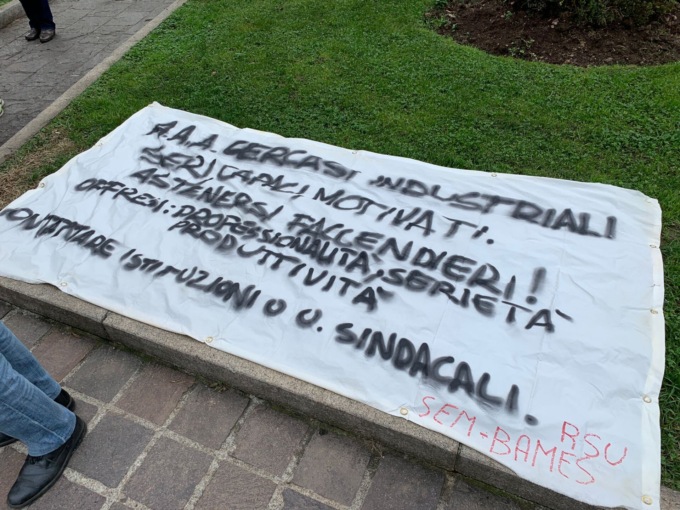 A.A.A. CERCASI INDUSTRIALI
SERI, CAPACI, MOTIVATI.
ASTENERSI FACCENDIERI!
OFFRESI: PROFESSIONALITÀ, SERIETÀ
PRODUTTIVITÀ
CONTATTARE ISTITUZIONI O O. SINDACALI.
RSU
SEM-BAMES